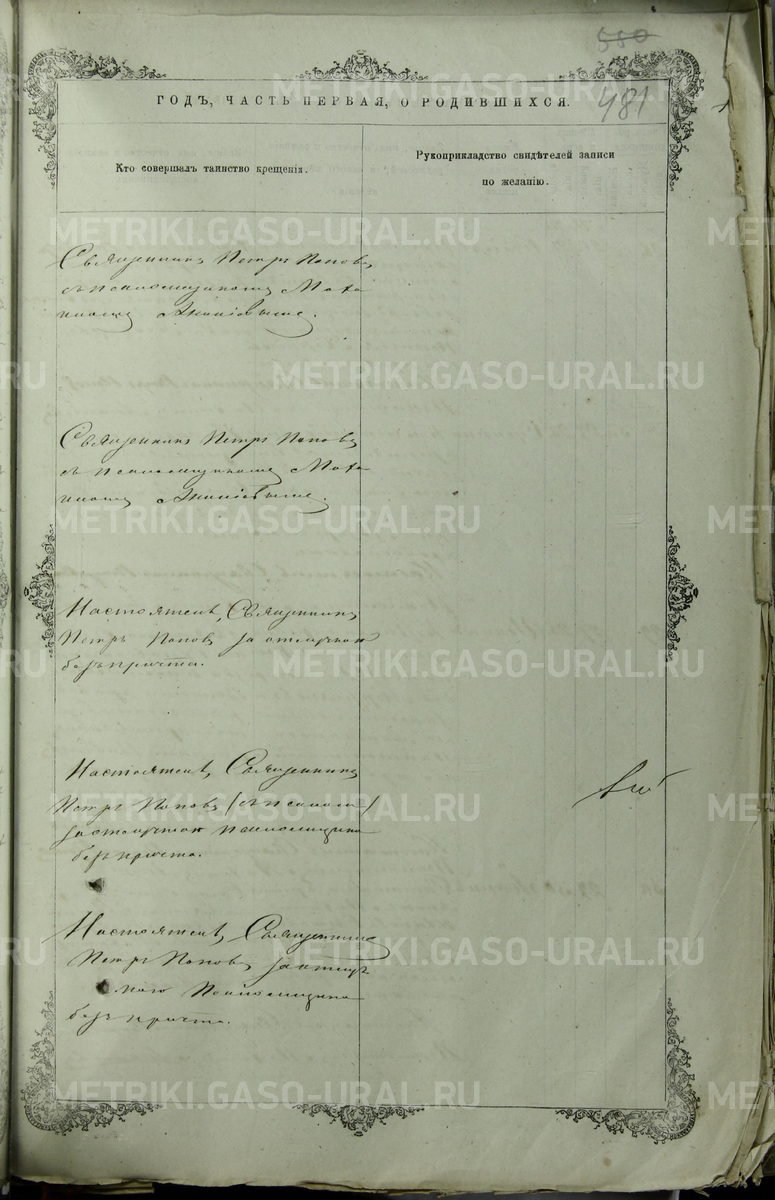 550
481
ГОДЪ, ЧАСТЬ ПЕРВАЯ, О РОДИВШИХСЯ.
Кто совершалъ таинство крещенія.
Рукоприкладство свидѣтелей записи
по желанію.
METRIKI.GASO-URAL.RU
Священникъ Петръ Поповъ
съ псаломщикомъ
Священникъ Петръ Поповъ
съ псаломщикомъ
Настоятель, Священникъ
Петръ Поповъ за отлучкою
безъ причта.
Настоятель, Священникъ
Петръ Поповъ (съ псалом)
за отлучкою псаломщика
безъ причта.
Настоятель, Священникъ
Петръ Поповъ, за отлуч
кою Псаломщика
безъ причта.